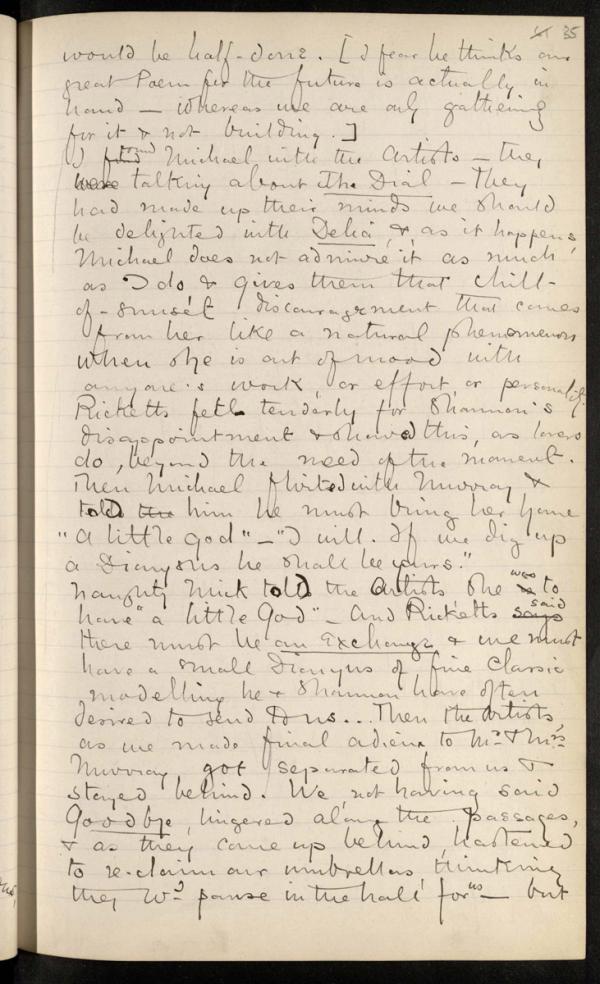 41 35
would be half-done. [I fear he thinks our
great Poem for the future is actually in
hand — whereas we are only gathering
for it & not building.]
I find found Michael with the Artists — they
were talking about The Dial — They
had made up their minds we should
be delighted with Delia, & as it happens,
Michael does not admire it as much
as I do & gives them that chill-
of-sunset discouragement that comes
from her like a natural phenomenon
when she is out of mood with
anyone's work, or effort, or personality.
Ricketts felt tenderly for Shannon's
disappointment & showed this, as lovers
do, beyond the need of the moment.
Then Michael flirted with Murray &
told the him he must bring her home
"A little god" — "I will. If we dig up
a Dionysus he shall be yours."
Naughty Mick told the Artists she is was to
have "a little God" — And Ricketts says said
there must be an Exchange & we must
have a small Dionysus of fine Classic
modelling he & Shannon have often
desired to send to us... Then the Artists,
as we made final adieux to Mr & Mrs
Murray, got separated from us &
stayed behind. We, not having said
Goodbye, lingered along the passages,
& as they came up behind, hastened
to re-claim our umbrellas, thinking
they wd pause in the hall for us — but